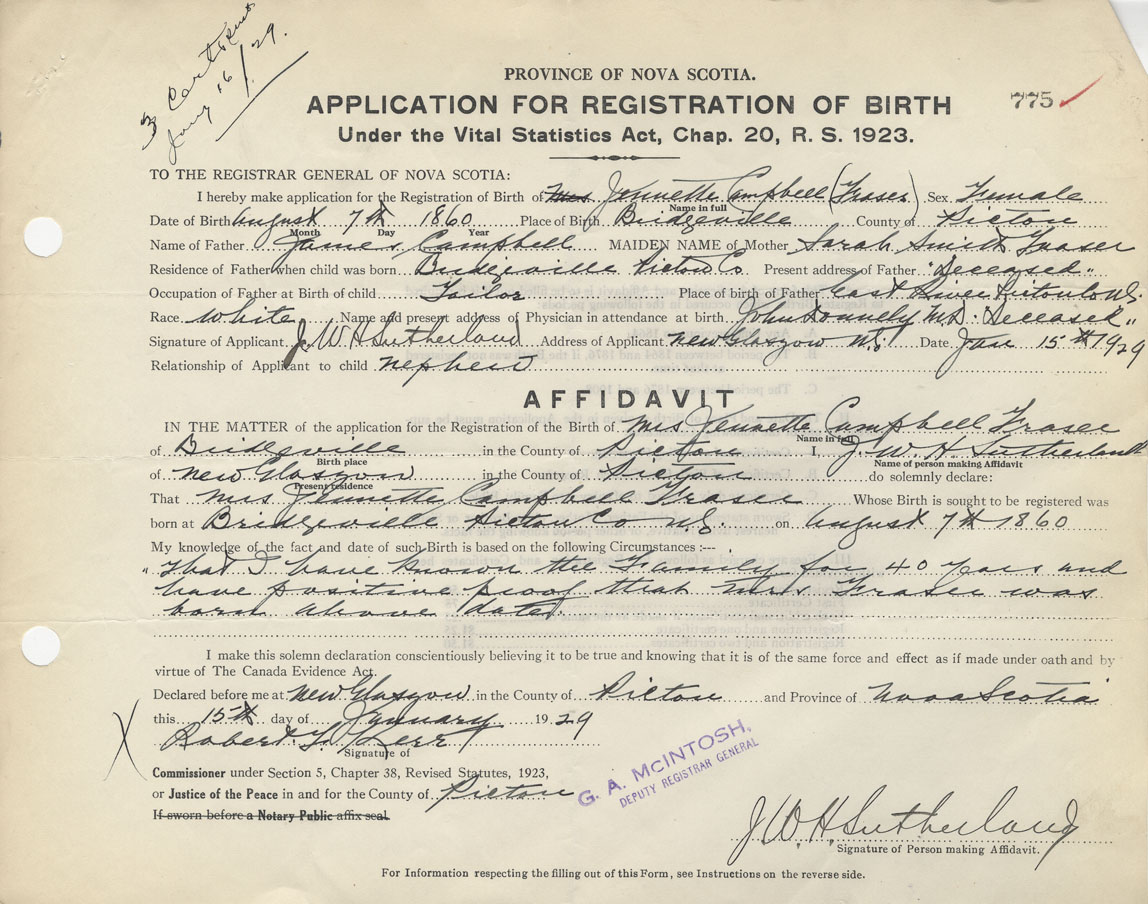 3 Cert & Sent
Jany 16/29.
PROVINCE OF NOVA SCOTIA.
APPLICATION FOR REGISTRATION OF BIRTH
775
Under the Vital Statistics Act, Chap. 20, R. S. 1923.
TO THE REGISTRAR GENERAL OF NOVA SCOTIA:
I hereby make application for the Registration of Birth of Mrs Jennette Campbell (Fraser) Sex Female
Name in full
Date of Birth August 7th 1860 Place of Birth Bridgeville County of Pictou
Month Day Year
Name of Father James Campbell MAIDEN NAME of Mother Sarah Smith Fraser
Residence of Father when child was born Bridgeville Pictou Co Present address of Father "Deceased"
Occupation of Father at Birth of child Tailor Place of birth of Father East River Pictou Co N.S.
Race White Name and present address of Physician in attendance at birth John Donnely M.D. Deceased"
Signature of Applicant J. W H Sutherland Address of Applicant New Glasgow N.S. Date Jan 15th 1929
Relationship of Applicant to child Nephew
AFFIDAVIT
IN THE MATTER of the application for the Registration of the Birth of Mrs Jennette Campbell Fraser
Name in full
of Bridgeville in the County of Pictou I, J. W. H. Sutherland
Birth place Name of person making Affidavit
of New Glasgow in the County of Pictou do solemnly declare:
Present residence
That Mrs Jennette Campbell Fraser Whose Birth is sought to be registered was
born at Bridgeville Pictou Co N.S. on August 7th 1860
My knowledge of the fact and date of such Birth is based on the following Circumstances :---
"That I have known the Family for 40 years and
have positive proof that Mrs Fraser was
born above date.
I make this solemn declaration conscientiously believing it to be true and knowing that it is of the same force and effect as if made under oath and by
virtue of The Canada Evidence Act.
Declared before me at New Glasgow in the County of Pictou and Province of Nova Scotia
this 15th day of January 1929
X Robert W Kerr
Signature of
G. A. McINTOSH,
DEPUTY REGISTRAR GENERAL
Commissioner under Section 5, Chapter 38, Revised Statutes, 1923,
or Justice of the Peace in and for the County of Pictou
If sworn before a Notary Public affix seal.
J W. H. Sutherland
Signature of Person making Affidavit.
For Information respecting the filling out of this Form, see Instructions on the reverse side.